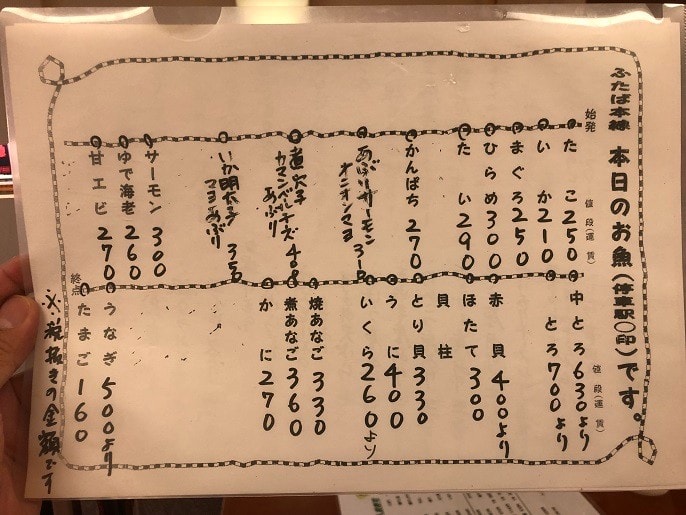 ふたば本線 本日のお魚(停車駅○印)です。
始発
値段(運賃)
たこ 250
いか 210
まぐろ 250
ひらめ 300
たい 290
かんぱち 270
あぶりサーモン
オニオンマヨ 310
煮穴子
カマンベールチーズ
あぶり 400
いか明太子
マヨあぶり 350
サーモン 300
ゆで海老 260
甘エビ 270
値段(運賃)
中とろ 630より
とろ 700より
赤貝 400より
ほたて 300
貝柱
とり貝 330
うに 400
いくら 260より
焼あなご 330
煮あなご 360
かに 270
うなぎ 500より
たまご 160
終点
※税抜きの金額です